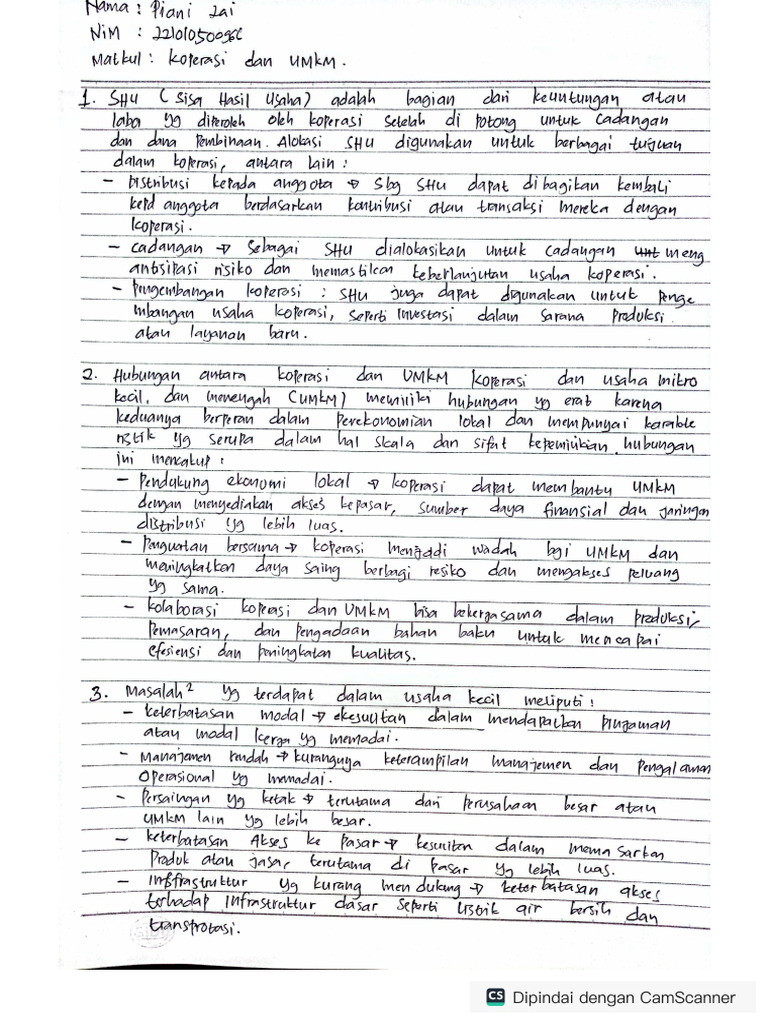 Nama : Piani Zai
NIM : 22101050096C
Matkul : Koperasi dan UMKM.
1. SHU (Sisa Hasil Usaha) adalah bagian dari keuntungan atau
laba yg diperoleh oleh koperasi setelah di potong untuk cadangan
dan dana pembinaan. Alokasi SHU digunakan untuk berbagai tujuan
dalam koperasi, antara lain :
- Distribusi kepada anggota → Sbg SHU dapat dibagikan kembali
kepd anggota berdasarkan kontribusi atau transaksi mereka dengan
koperasi.
- Cadangan → Sebagai SHU dialokasikan untuk cadangan unt meng
antisipasi risiko dan memastikan keberlanjutan usaha koperasi.
- Pengembangan koperasi : SHU juga dapat digunakan untuk penge
mbangan usaha koperasi, seperti investasi dalam sarana produksi
atau layanan baru.
2. Hubungan antara koperasi dan UMKM koperasi dan usaha mikro
kecil, dan menengah (UMKM) memiliki hubungan yg erat karena
keduanya berperan dalam perekonomian lokal dan mempunyai karakte
ristik yg serupa dalam hal skala dan sifat kepemilikan. hubungan
ini mencakup :
- Pendukung ekonomi lokal → koperasi dapat membantu UMKM
dengan menyediakan akses kepasar, sumber daya finansial dan jaringan
distribusi yg lebih luas.
- Penguatan bersama → koperasi menjaddi wadah bgi UMKM dan
meningkatkan daya saing berbagi resiko dan mengakses peluang
yg sama.
- Kolaborasi koperasi dan UMKM bisa bekerjasama dalam produksi,
Pemasaran, dan pengadaan bahan baku untuk mencapai
efesiensi dan peningkatan kualitas.
3. Masalah² yg terdapat dalam usaha kecil meliputi :
- keterbatasan modal → kesulitan dalam mendapatkan pinjaman
atau modal kerja yg memadai.
- Manajemen rendah → kurangnya keterampilan manajemen dan pengalaman
Operasional yg memadai.
- Persaingan yg ketak → terutama dari perusahaan besar atau
UMKM lain yg lebih besar.
- keterbatasan Akses ke pasar → kesulitan dalam memasarkan
Produk atau jasa, terutama di pasar yg lebih luas.
- Inffrastruktur yg kurang mendukung → keterbatasan akses
terhadap infrastruktur dasar seperti listrik air bersih dan
transprotasi.
CS Dipindai dengan CamScanner